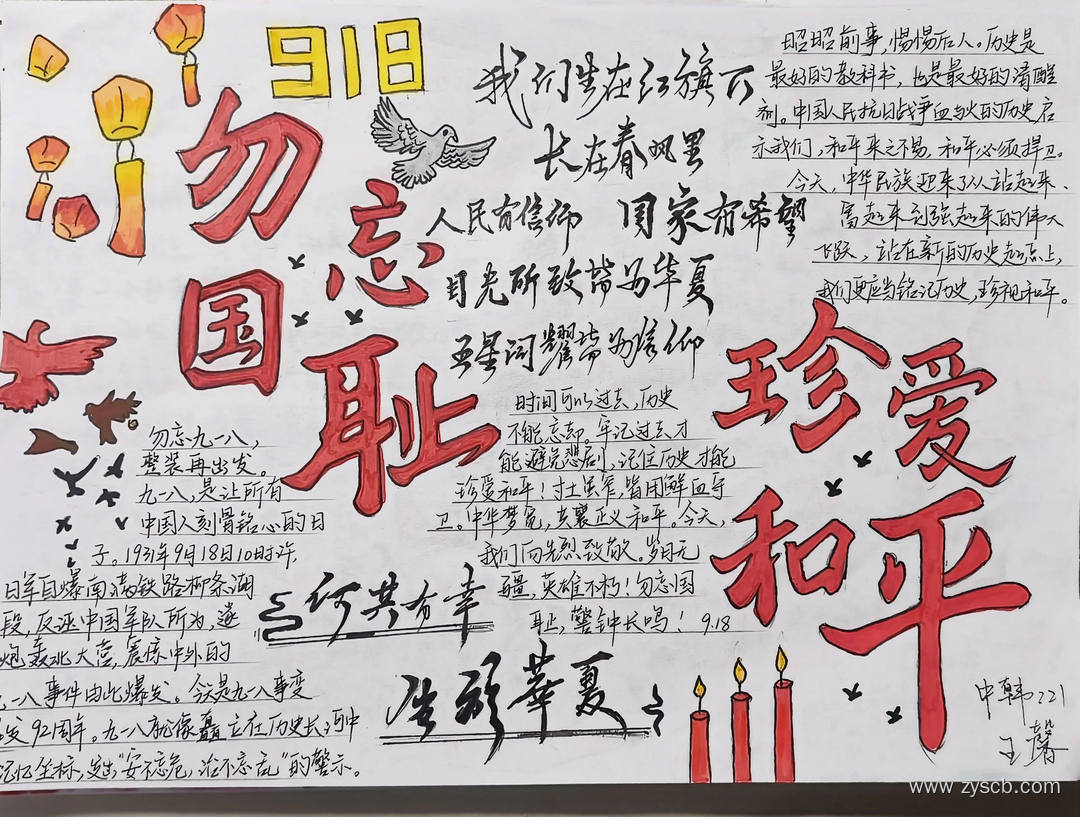 918
勿忘
国耻
珍爱
和平
我们生在红旗下
长在春风里
人民有信仰 国家有希望
目光所致皆为华夏
五星闪耀皆为信仰
昭昭前事，惕惕后人。历史是
最好的教科书，也是最好的清醒
剂。中国人民抗日战争血与火的历史启
示我们，和平来之不易，和平必须捍卫。
今天，中华民族迎来了从站起来、
富起来到强起来的伟大
飞跃，站在新的历史起点上，
我们更应当铭记历史，珍视和平。
勿忘九一八，
整装再出发。
九一八，是让所有
中国人刻骨铭心的日
子。1931年9月18日10时许，
日军自爆南满铁路柳条湖
段，反诬中国军队所为，遂
炮轰北大营，震惊中外的
九一八事件由此爆发。今天是九一八事变
爆发92周年。九一八就像矗立在历史长河中
记忆坐标，发出“安不忘危，治不忘乱”的警示。
时间可以过去，历史
不能忘却。牢记过去才
能避免悲剧，记住历史才能
珍爱和平！寸土虽窄，皆用鲜血守
卫。中华梦宽，共襄正义和平。今天，
我们向先烈致敬。岁月无
疆，英雄不朽！勿忘国
耻，警钟长鸣！9.18
何其有幸
生于華夏
中韩221
王馨
www.zyscb.com